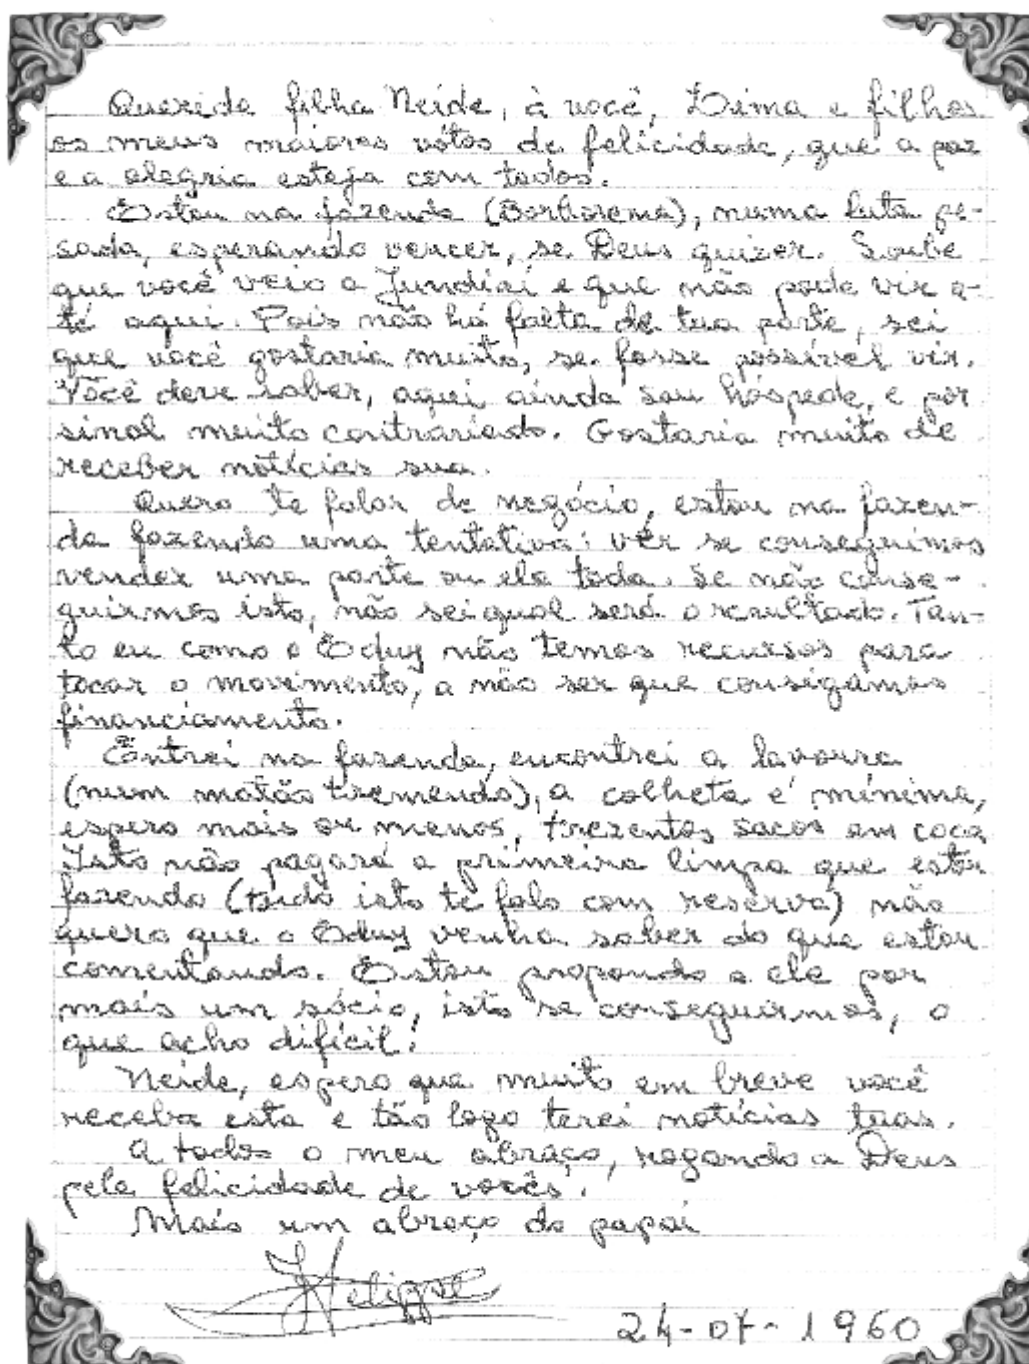 Querida filha Neide, à você, Dima e filhos
os meus maiores vótos de felicidade, que a paz
e a alegria esteja com todos.
Estou na fazenda (Borborema), numa luta pe-
sada, esperando vencer, se Deus quizer. Soube
que você veio a Jundiaí e que não pode vir a-
té aqui. Pois não há falta de tua parte, sei
que você gostaria muito, se fosse possível vir.
Você deve saber, aqui ainda sou hóspede, e por
sinal muito contrariado. Gostaria muito de
receber notícias sua.
Quero te falar de negócio, estou na fazen-
da fazendo uma tentativa: vêr se conseguimos
vender uma parte ou ela toda. Se não conse-
guirmos isto, não sei qual será o resultado. Tan-
to eu como o Eduy não temos recursos para
tocar o movimento, a não ser que consigamos
financiamento.
Entrei na fazenda, encontrei a lavoura
(num matão tremendo), a colheta é mínima,
espero mais ou menos, trezentos sacos em coca
Isto não pagará a primeira limpa que estou
fazendo (tudo isto te falo com reserva) não
quero que o Eduy venha saber do que estou
comentando. Estou propondo a ele por
mais um sócio, isto se conseguirmos, o
que acho difícil!
Neide, espero que muito em breve você
receba esta e tão logo terei notícias tuas.
A todos o meu abraço, rogando a Deus
pela felicidade de vocês.
Mais um abraço do papai
Felippe
24-07-1960